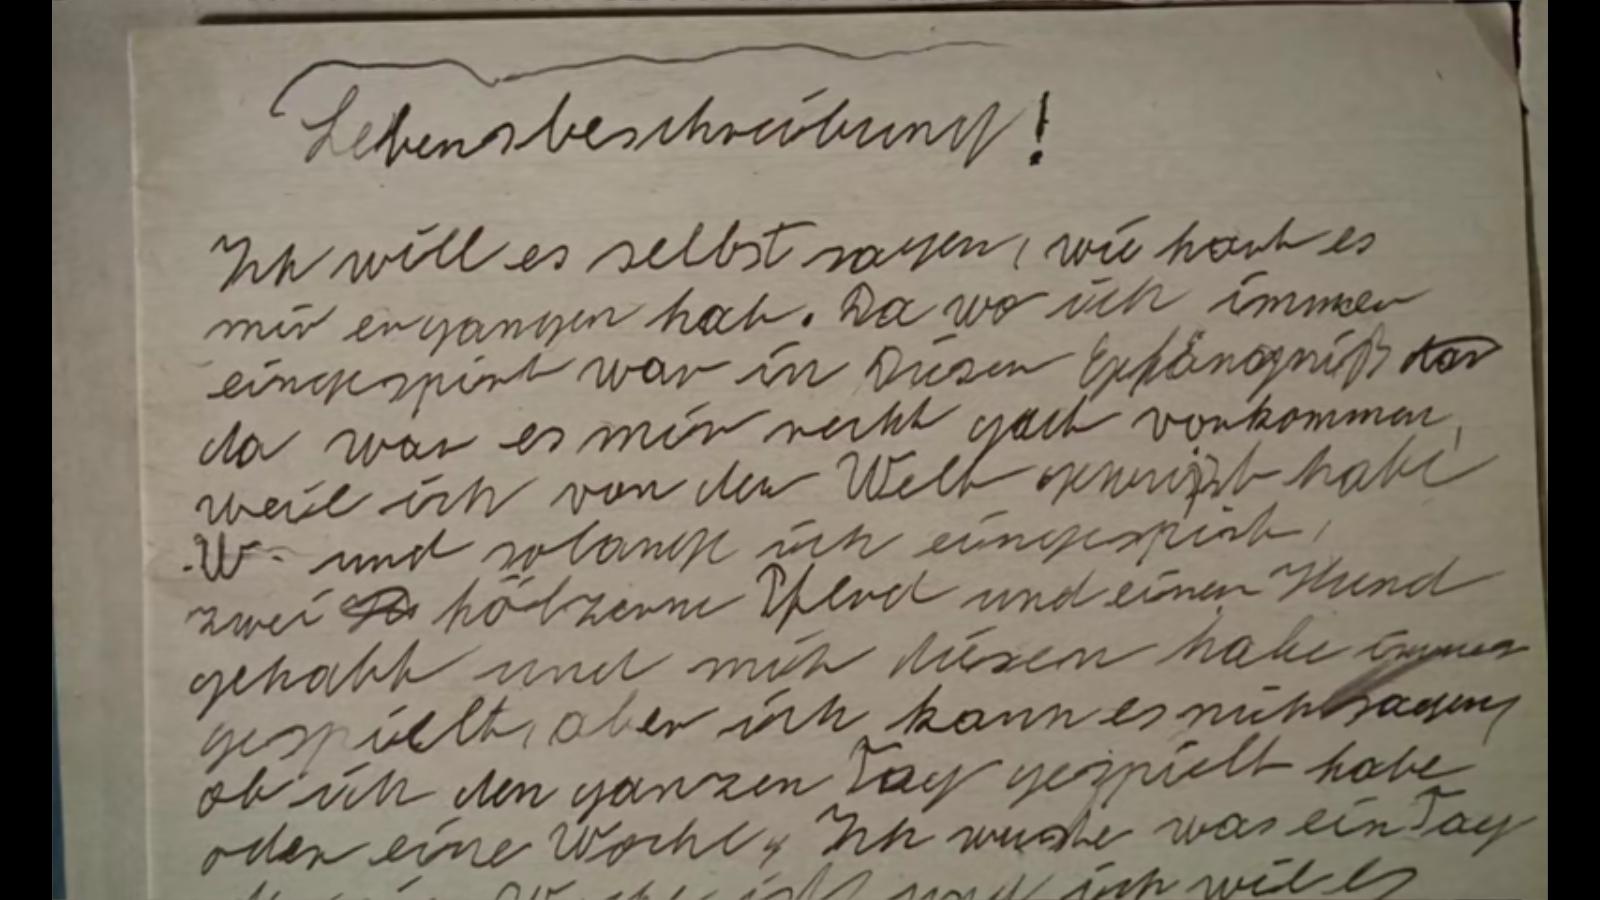 Lebensbeschreibung!
Ich will es selbst sagen, wie hart es
mir ergangen hat. Da wo ich immer
eingespirt war in Diesen Gefängniß
da war es mir recht gut vorkommen,
weil ich von der Welt habe
W- und solange ich eingespirt,
zwei hölzerne Pferd und einen Hund
gehabt und mit diesen habe immer
gespielt, aber ich kann es nicht sagen,
ob ich den ganzen Tag gespielt habe
oder eine Woche, Ich wuste was ein Tag
ich will es